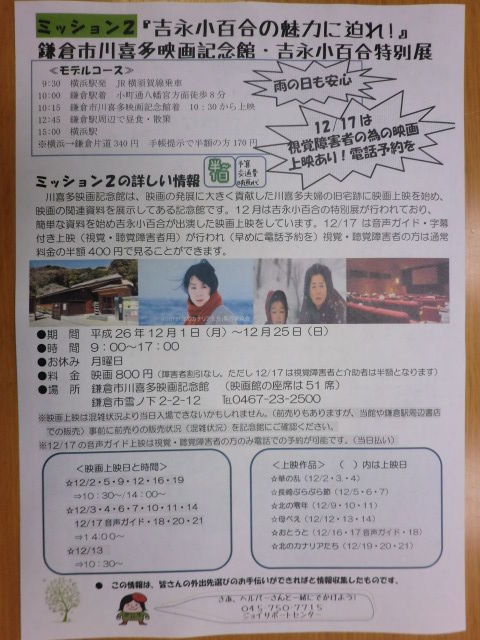 ミッション2『吉永小百合の魅力に迫れ!』
鎌倉市川喜多映画記念館・吉永小百合特別展
≪モデルコース≫
9:30 横浜駅発 JR横須賀線乗車
10:00 鎌倉駅着 小町通八幡宮方面徒歩8分
10:15 鎌倉市川喜多映画記念館着 10:30から上映
12:45 鎌倉駅周辺で昼食・散策
15:00 横浜駅
※横浜→鎌倉片道340円 手帳提示で半額の方170円
雨の日も安心
12/17は
視覚障害者の為の映画
上映あり!電話予約を
ミッション2の詳しい情報
予算
交通費
川喜多映画記念館は、映画の発展に大きく貢献した川喜多夫婦の旧宅跡に映画上映を始め、
映画の関連資料を展示してある記念館です。12月は吉永小百合の特別展が行われており、
簡単な資料を始め吉永小百合が出演した映画上映をしています。12/17は音声ガイド・字幕
付き上映(視覚・聴覚障害者用)が行われ(早めに電話予約を)視覚・聴覚障害者の方は通常
料金の半額400円で見ることができます。
●期 間 平成26年12月1日(月)~12月25日(日)
●時 間 9:00~17:00
●お休み 月曜日
●料 金 映画800円(障害者割引なし。ただし12/17は視覚障害者と介助者は半額となります)
●場 所 鎌倉市川喜多映画記念館 (映画館の座席は51席)
鎌倉市雪ノ下2-2-12 ℡0467-23-2500
※映画上映は混雑状況より当日入場できないかもしれません。(前売りもありますが、当館や鎌倉駅周辺書店
での販売)事前に前売りの販売状況(混雑状況)を記念館にご確認ください。
※12/17の音声ガイド上映は視覚・聴覚障害者の方のみ電話での予約が可能です。(当日払い)
<映画上映日と時間>
☆12/2・5・9・12・16・19
⇒10:30~/14:00~
☆12/3・4・6・7・10・11・14
12/17音声ガイド・18・20・21
⇒14:00~
☆12/13
⇒10:30~
<上映作品> ( )内は上映日
☆華の乱(12/2・3・4)
☆長崎ぶらぶら節(12/5・6・7)
☆北の零年(12/9・10・11)
☆母べえ(12/12・13・14)
☆おとうと(12/16・17音声ガイド・18)
☆北のカナリアたち(12/19・20・21)
● この情報は、皆さんの外出先選びのお手伝いができればと情報収集したものです。
さあ、ヘルパーさんと一緒にでかけよう!
045-750-7715
ジョイサポートセンター